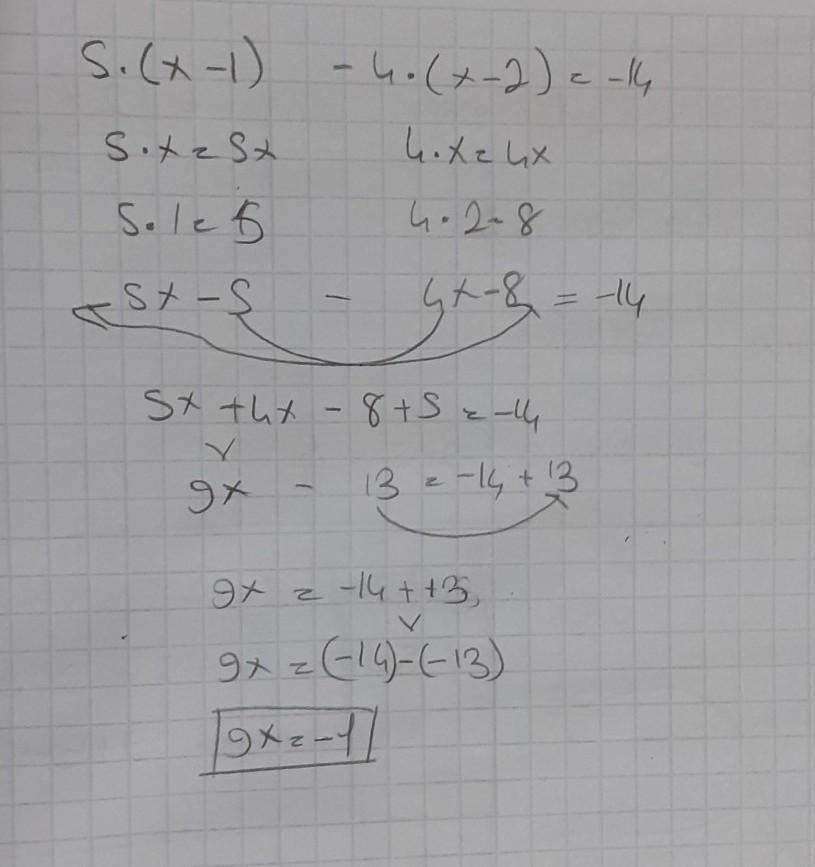 5.(x-1) - 4.(x-2) = -14
5.x = 5x 4.x = 4x
5.1 = 5 4.2 = 8
5x - 5 - 4x - 8 = -14
5x + 4x - 8 + 5 = -14
9x - 13 = -14 + 13
9x = -14 + +13
9x = (-14) - (-13)
9x = -1